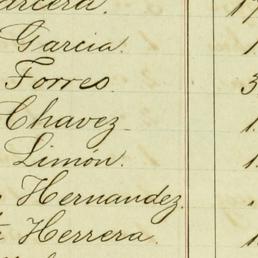 Garcia. 1
Torres. 3
Chavez 1
Limón. 1
Hernandez.
Herrera. 1